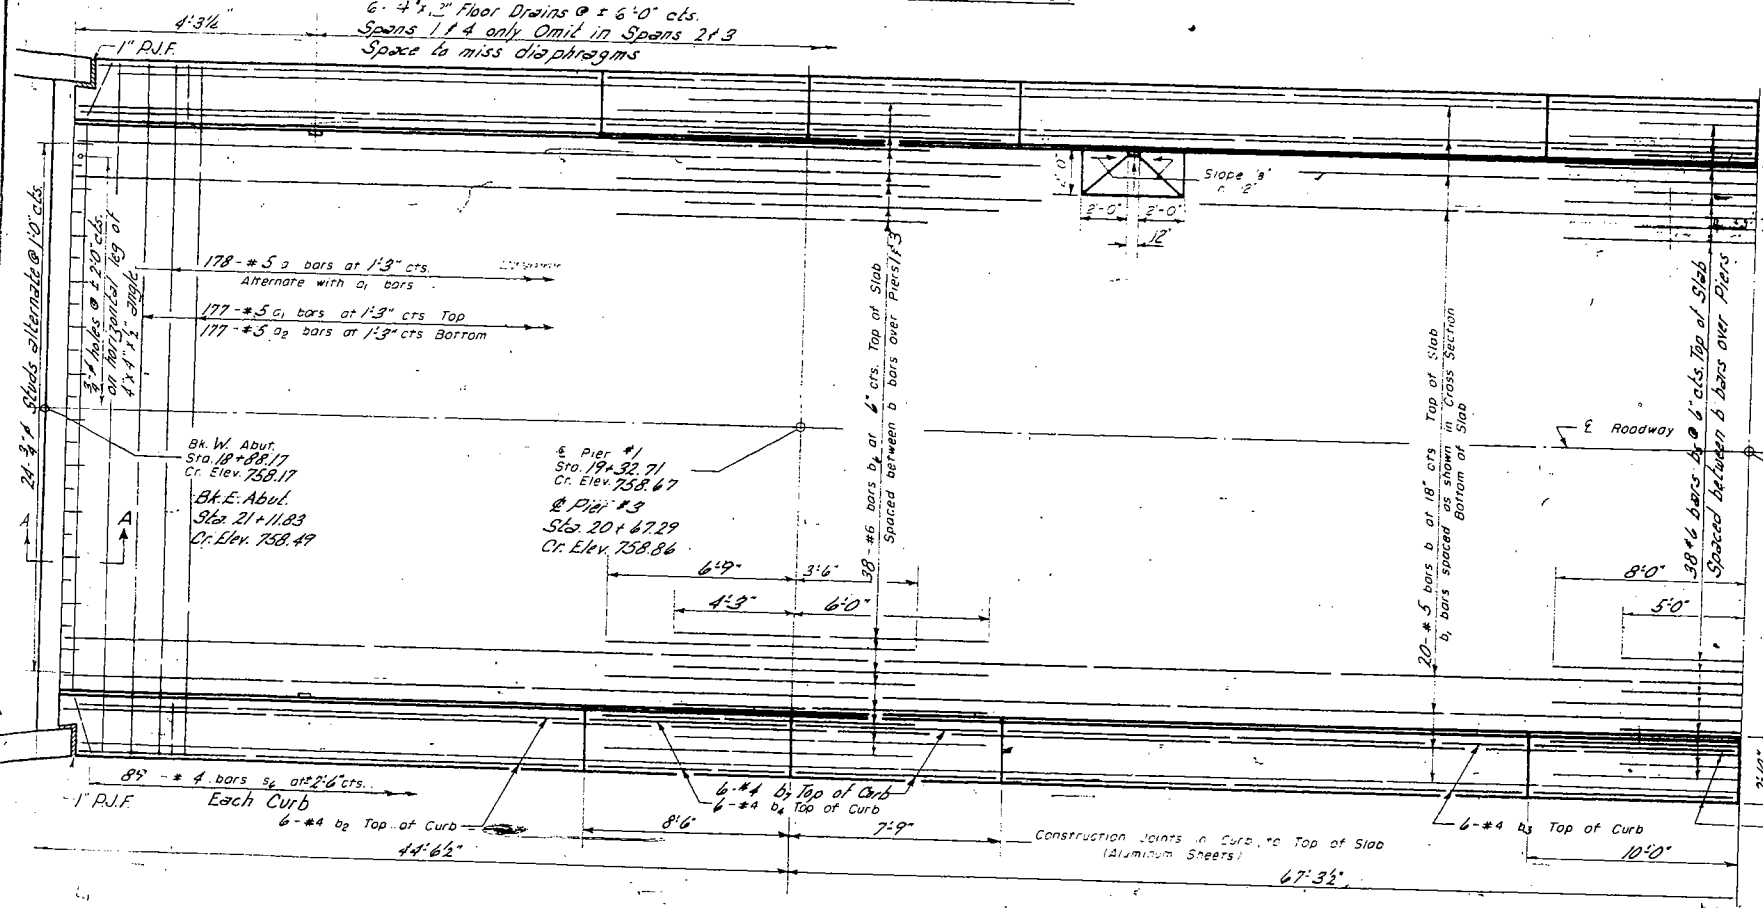 6 - 4" x 2" Floor Drains @ ± 6'-0" cts.
Spans 1 & 4 only Omit in Spans 2 & 3
Space to miss diaphragms
4'-3½"
1" P.J.F.
24-¾"ϕ Studs alternate @ 1'-0" cts.
¾"ϕ holes @ ± 2'-0" cts.
on horizontal leg of
4" x 4" x ½" angle
178 - #5 a bars at 1'-3" cts.
Alternate with a₁ bars
177 - #5 a₁ bars at 1'-3" cts Top
177 - #5 a₂ bars at 1'-3" cts Bottom
Bk. W. Abut.
Sta. 18+88.17
Cr. Elev. 758.17
Bk. E. Abut.
Sta. 21+11.83
Cr. Elev. 758.49
A
A
℄ Pier #1
Sta. 19+32.71
Cr. Elev. 758.67
℄ Pier #3
Sta. 20+67.29
Cr. Elev. 758.86
38 - #6 bars b₄ at 6" cts. Top of Slab
Spaced between b bars over Piers 1 & 3
2'-0"
Slope
2'-0"
2'-0"
12"
20 - #5 bars b at 18" cts Top of Slab
b₁ bars spaced as shown in Cross Section
Bottom of Slab
38 #6 bars b₅ @ 6" cts. Top of Slab
Spaced between b bars over Piers
℄ Roadway
6'-9"
3'-6"
4'-3"
6'-0"
8'-0"
5'-0"
89 - #4 bars s₆ at ± 2'-6" cts.
Each Curb
1" P.J.F.
6-#4 b₂ Top of Curb
6-#4 b₇ Top of Curb
6-#4 b₄ Top of Curb
6-#4 b₃ Top of Curb
8'-6"
7'-9"
Construction Joints in Curb, to Top of Slab
(Aluminum Sheets)
10'-0"
44'-6½"
67'-3½"